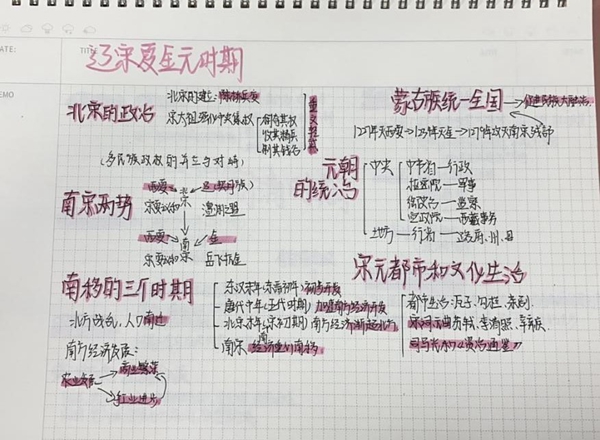 DATE:
TITLE:
MEMO
辽宋夏金元时期
北宋的政治
北宋的建立:陈桥兵变
宋太祖强化中央集权
削弱其权
收其精兵
制其钱谷
重文轻武
(多民族政权的并立与对峙)
南宋两势
西夏
辽(契丹族)
北宋
宋夏议和
澶渊之盟
西夏
金
南宋
宋夏议和
岳飞抗金
南移的三个时期
北方战乱,人口南迁
南方经济发展:
农业发展
商业繁荣
手工业进步
东汉末年(东南朝)初步开发
唐代中年(五代时期)加速南方经济开发
北宋末年(宋初期)南方经济渐超北方
南宋 经济重心南移
蒙古族统一全国
促进民族大融合
元朝的统治
中央
中书省—行政
枢密院—军事
御史台—监察
宣政院—西藏事务
地方—行省—路、府、州、县
宋元都市和文化生活
都市生活:瓦子、勾栏、杂剧.
宋词元曲:苏轼、李清照、辛弃疾
司马光的《资治通鉴》